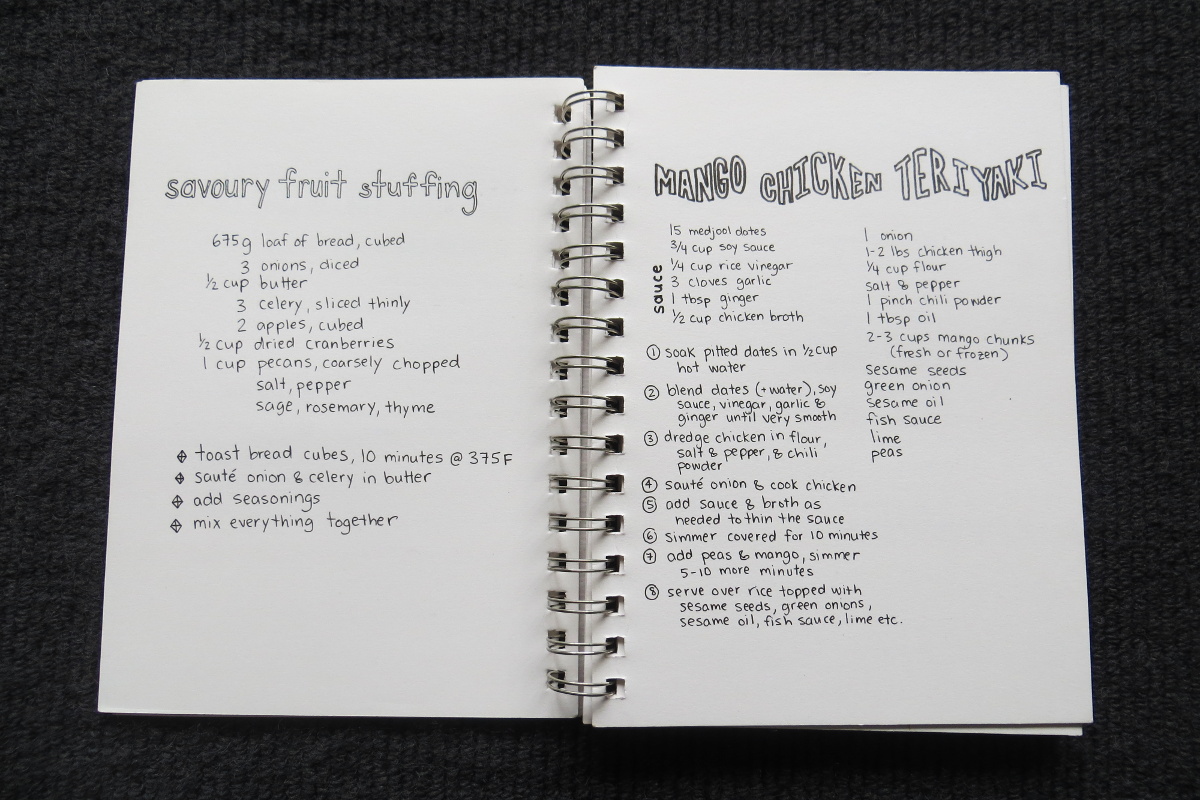 savoury fruit stuffing
675g loaf of bread, cubed
3 onions, diced
½ cup butter
3 celery, sliced thinly
2 apples, cubed
½ cup dried cranberries
1 cup pecans, coarsely chopped
salt, pepper
sage, rosemary, thyme
toast bread cubes, 10 minutes @ 375F
sauté onion & celery in butter
add seasonings
mix everything together
MANGO CHICKEN TERIYAKI
sauce
15 medjool dates
3/4 cup soy sauce
1/4 cup rice vinegar
3 cloves garlic
1 tbsp ginger
½ cup chicken broth
1 onion
1-2 lbs chicken thigh
1/4 cup flour
salt & pepper
1 pinch chili powder
1 tbsp oil
2-3 cups mango chunks
(fresh or frozen)
sesame seeds
green onion
sesame oil
fish sauce
lime
peas
① soak pitted dates in ½ cup
hot water
② blend dates (+water), soy
sauce, vinegar, garlic &
ginger until very smooth
③ dredge chicken in flour,
salt & pepper, & chili
powder
④ sauté onion & cook chicken
⑤ add sauce & broth as
needed to thin the sauce
⑥ simmer covered for 10 minutes
⑦ add peas & mango, simmer
5-10 more minutes
⑧ serve over rice topped with
sesame seeds, green onions,
sesame oil, fish sauce, lime etc.